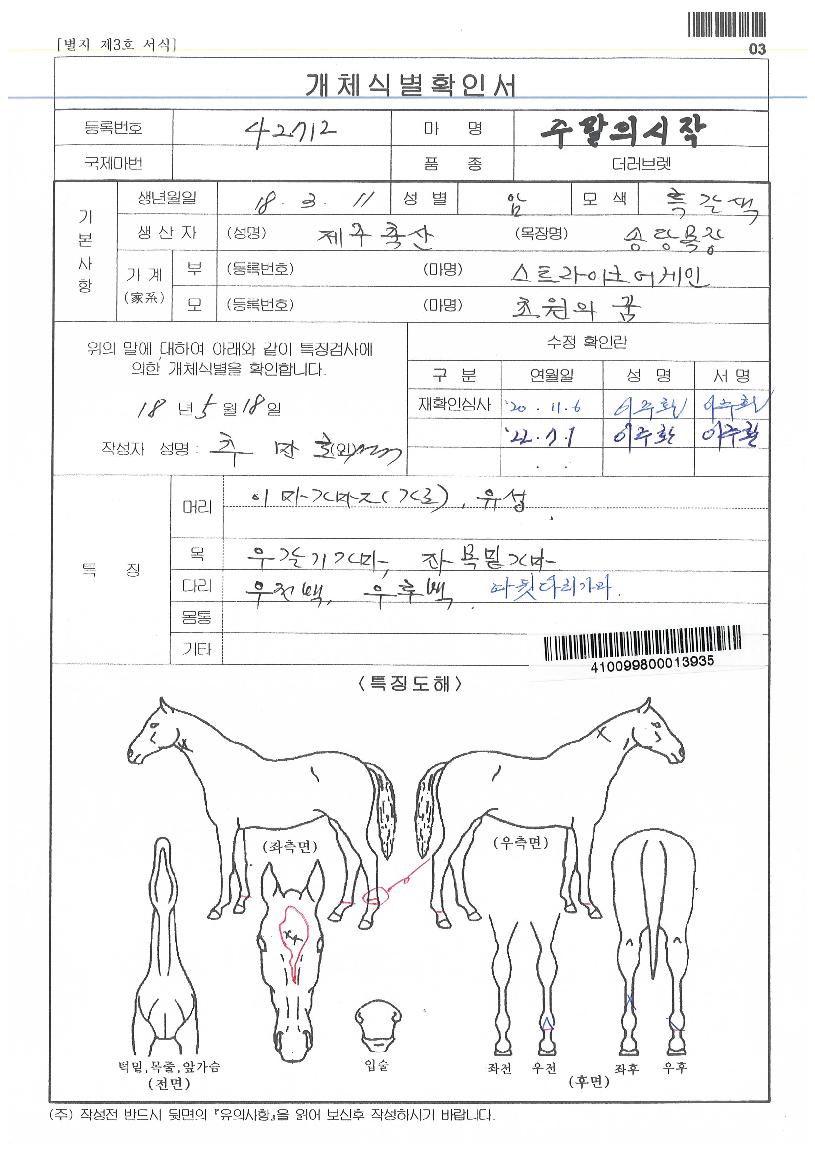 [별지 제3호 서식]
03
개체식별확인서
등록번호 42712 마 명 주말의시작
국제마번 품 종 더러브렛
기본사항
생년월일 18. 3. 11 성 별 암 모 색 흑갈색
생 산 자 (성명) 제주축산 (목장명) 송당목장
가 계 (家系) 부 (등록번호) (마명) 스트라이크어게인
모 (등록번호) (마명) 초원의 꿈
위의 말에 대하여 아래와 같이 특징검사에
의한 개체식별을 확인합니다.
18 년 5 월 18 일
작성자 성명 : (인)
수정 확인란
구 분 연월일 성 명 서 명
재확인심사 '20. 11. 6 이주환 이주환
'22. 7. 1 이주환 이주환
특 징
머리 이마가마즈(가로), 유성
목 우갈기가마, 좌목밑가마
다리 우전백, 우후백 좌뒷다리가마.
몸통
기타
410099800013935
<특징도해>
(좌측면) (우측면)
턱밑,목줄,앞가슴
(전면)
입술
좌전 우전 좌후 우후
(후면)
(주) 작성전 반드시 뒷면의 『유의사항』을 읽어 보신후 작성하시기 바랍니다.